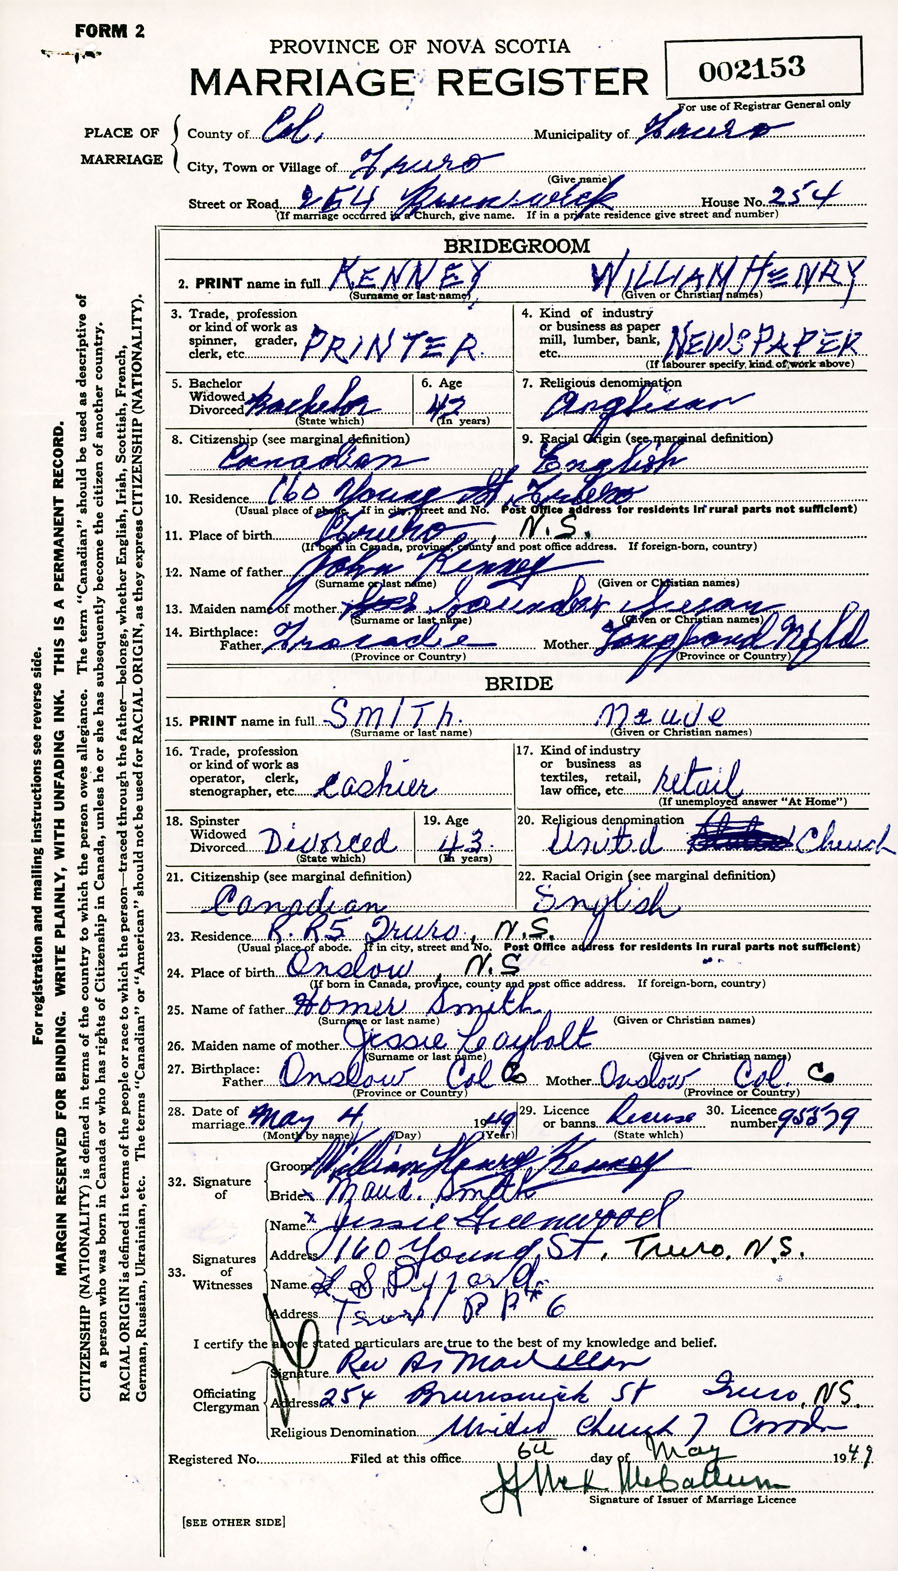 FORM 2
PROVINCE OF NOVA SCOTIA
MARRIAGE REGISTER
002153
For use of Registrar General only
PLACE OF MARRIAGE
County of Col. Municipality of Truro
City, Town or Village of Truro
(Give name)
Street or Road 254 Brunswick House No. 254
(If marriage occurred in a Church, give name. If in a private residence give street and number)
BRIDEGROOM
2. PRINT name in full KENNEY WILLIAM HENRY
(Surname or last name) (Given or Christian names)
3. Trade, profession or kind of work as spinner, grader, clerk, etc. PRINTER
4. Kind of industry or business as paper mill, lumber, bank, etc. NEWSPAPER
(If labourer specify kind of work above)
5. Bachelor Widowed Divorced Bachelor
(State which)
6. Age 42
(In years)
7. Religious denomination
Anglican
8. Citizenship (see marginal definition)
Canadian
9. Racial Origin (see marginal definition)
English
10. Residence 160 Young St Truro
(Usual place of abode. If in city, street and No. Post Office address for residents in rural parts not sufficient)
11. Place of birth Truro, N.S.
(If born in Canada, province, county and post office address. If foreign-born, country)
12. Name of father John Kenney
(Surname or last name) (Given or Christian names)
13. Maiden name of mother Saunders Susan
(Surname or last name) (Given or Christian names)
14. Birthplace: Father Tracadie Mother Nfld
(Province or Country) (Province or Country)
BRIDE
15. PRINT name in full SMITH. Maude
(Surname or last name) (Given or Christian names)
16. Trade, profession or kind of work as operator, clerk, stenographer, etc. Cashier
17. Kind of industry or business as textiles, retail, law office, etc. retail
(If unemployed answer "At Home")
18. Spinster Widowed Divorced Divorced
(State which)
19. Age 43
(In years)
20. Religious denomination
United Church
21. Citizenship (see marginal definition)
Canadian
22. Racial Origin (see marginal definition)
English
23. Residence R. R 5 Truro, N.S.
(Usual place of abode. If in city, street and No. Post Office address for residents in rural parts not sufficient)
24. Place of birth Onslow, N.S
(If born in Canada, province, county and post office address. If foreign-born, country)
25. Name of father Homer Smith
(Surname or last name) (Given or Christian names)
26. Maiden name of mother Jessie Leaybolt
(Surname or last name) (Given or Christian names)
27. Birthplace: Father Onslow Col Co Mother Onslow Col. Co
(Province or Country) (Province or Country)
28. Date of marriage May 4 1949
(Month by name) (Day) (Year)
29. Licence or banns License
(State which)
30. Licence number 95579
32. Signature of
Groom William Henry Kenney
Bride x Maud. Smith
33. Signatures of Witnesses
Name x Jessie Greenwood
Address 160 Young St. Truro, N.S.
Name
Address Truro R R # 6
I certify the above stated particulars are true to the best of my knowledge and belief.
Officiating Clergyman
Signature Rev
Address 254 Brunswick St Truro, N.S.
Religious Denomination United Church of Canada
Registered No. Filed at this office 6th day of May 1949
Signature of Issuer of Marriage Licence
[SEE OTHER SIDE]
For registration and mailing instructions see reverse side.
MARGIN RESERVED FOR BINDING. WRITE PLAINLY, WITH UNFADING INK. THIS IS A PERMANENT RECORD.
CITIZENSHIP (NATIONALITY) is defined in terms of the country to which the person owes allegiance. The term "Canadian" should be used as descriptive of
a person who was born in Canada or who has rights of Citizenship in Canada, unless he or she has subsequently become the citizen of another country.
RACIAL ORIGIN is defined in terms of the people or race to which the person—traced through the father—belongs, whether English, Irish, Scottish, French,
German, Russian, Ukrainian, etc. The terms "Canadian" or "American" should not be used for RACIAL ORIGIN, as they express CITIZENSHIP (NATIONALITY).